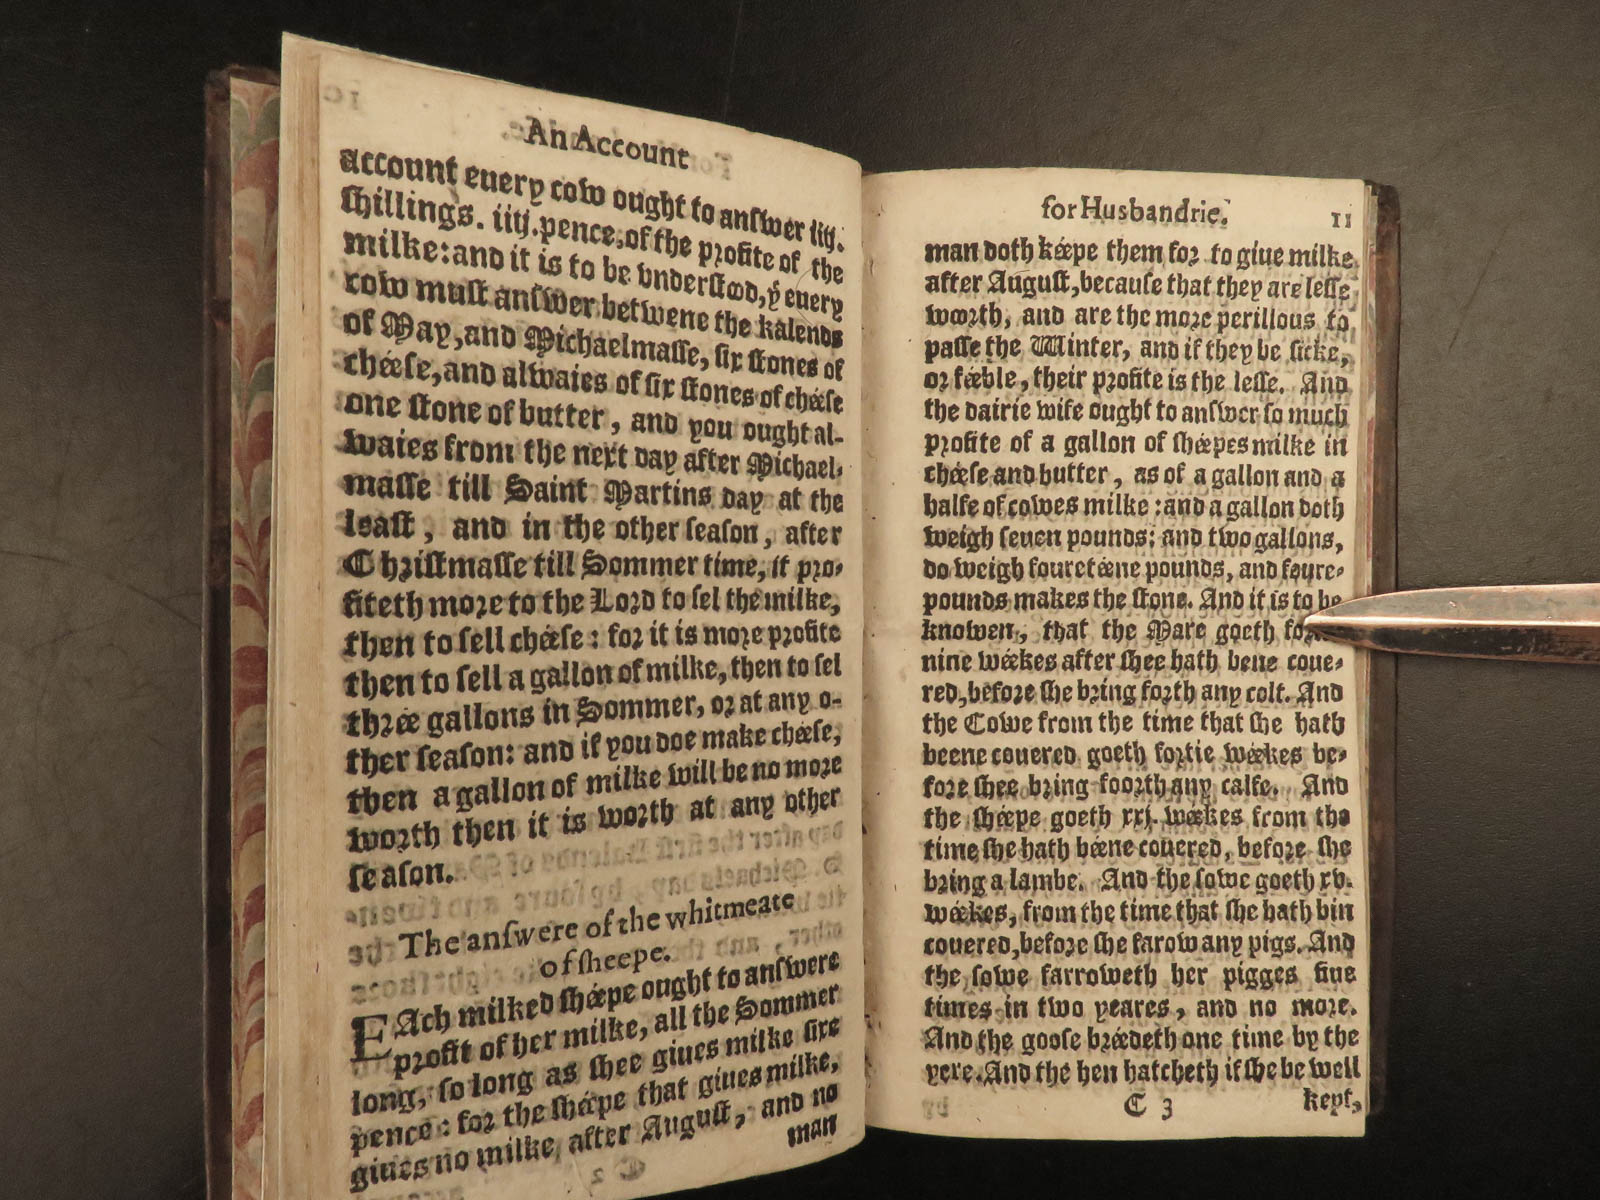 An Account
account euery cow ought to anſwer iiij.
ſhillings. iiij. pence, of the profite of the
milke: and it is to be vnderſtood, ẏ euery
cow muſt anſwer betwene the kalends
of May, and Michaelmaſſe, ſix ſtones of
cheeſe, and alwaies of ſix ſtones of cheeſe
one ſtone of butter, and you ought al-
waies from the next day after Michael-
maſſe till Saint Martins day at the
leaſt, and in the other ſeaſon, after
Chriſtmaſſe till Sommer time, it pro-
fiteth more to the Lord to ſel the milke,
then to ſell cheeſe: for it is more profite
then to ſell a gallon of milke, then to ſel
three gallons in Sommer, or at any o-
ther ſeaſon: and if you doe make cheeſe,
then a gallon of milke will be no more
worth then it is worth at any other
ſeaſon.
The anſwere of the whitmeate
of ſheepe.
EAch milked ſheepe ought to anſwere
profit of her milke, all the Sommer
long, ſo long as ſhee giues milke ſixe
pence: for the ſheepe that giues milke,
giues no milke, after Auguſt, and no
man
C 2
for Husbandrie. 11
man doth keepe them for to giue milke
after Auguſt, becauſe that they are leſſe
woorth, and are the more perillous to
paſſe the Winter, and if they be ſicke,
or feeble, their profite is the leſſe. And
the dairie wife ought to anſwer ſo much
profite of a gallon of ſheepes milke in
cheeſe and butter, as of a gallon and a
halfe of cowes milke: and a gallon doth
weigh ſeuen pounds: and two gallons,
do weigh foureteene pounds, and foure-
pounds makes the ſtone. And it is to be
knowen, that the Mare goeth
nine weekes after ſhee hath bene coue-
red, before ſhe bring forth any colt. And
the Cowe from the time that ſhe hath
beene couered goeth fortie weekes be-
fore ſhee bring foorth any calfe. And
the ſheepe goeth xxj. weekes from the
time ſhe hath beene couered, before ſhe
bring a lambe. And the ſowe goeth xv.
weekes, from the time that ſhe hath bin
couered, before ſhe farow any pigs. And
the ſowe farroweth her pigges fiue
times in two yeares, and no more.
And the gooſe breedeth one time by the
yere. And the hen hatcheth if ſhe be well
C 3 kept,